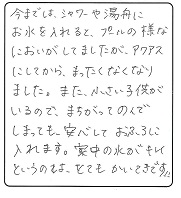 今までは、シャワーや湯舟に
お水を入れると、プールの様な
においがしてましたが、アクアス
にしてから、まったくなくなり
ました。また、小さい子供が
いるので、まちがってのんで
しまっても、安心して お風呂に
入れます。家中の水がキレイ
というのは、とても かいてきです!!